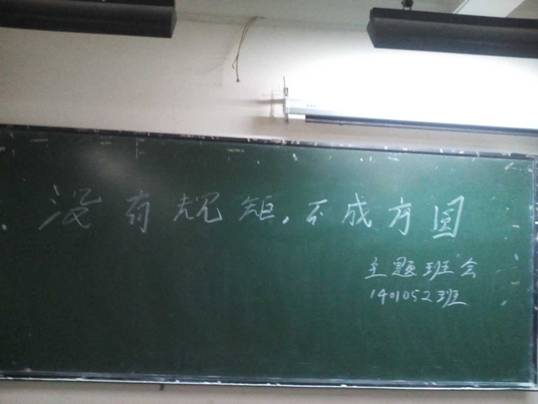 没有规矩,不成方圆
主题班会
1401052班